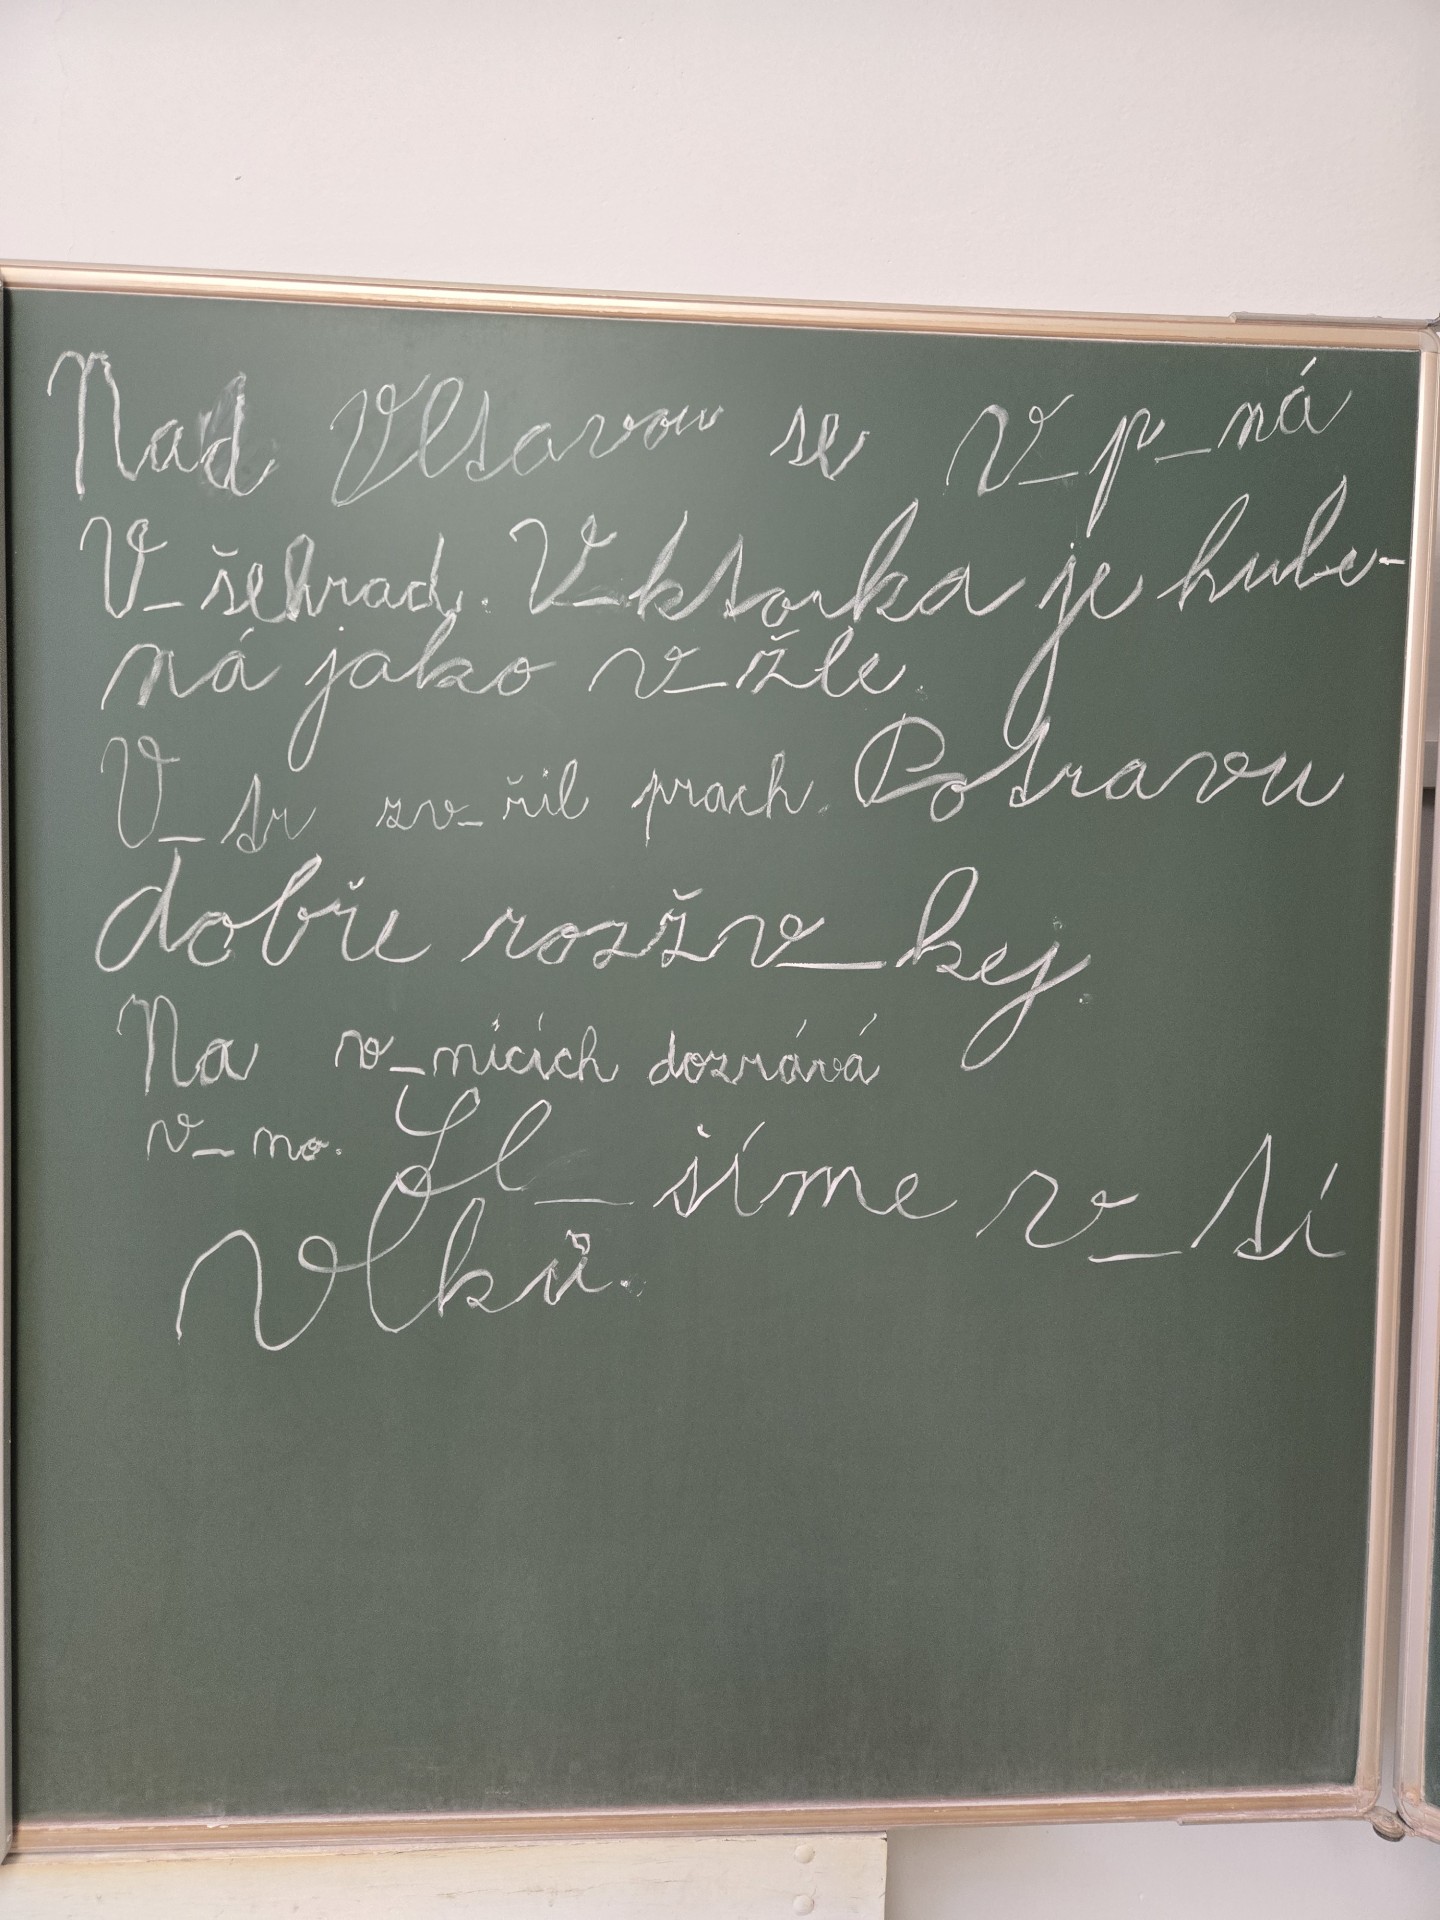 Nad Vltavou se v_p_ná
V_šehrad. V_ktorka je hube-
ná jako v_žle.
V_tr zv_řil prach. Potravu
dobře rozžv_kej.
Na v_nicích dozrává
v_no. Sl_šíme v_tí
vlků.